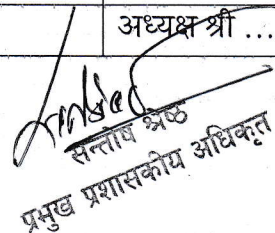 अध्यक्ष श्री ...
सन्तोष श्रेष्ठ
प्रमुख प्रशासकीय अधिकृत